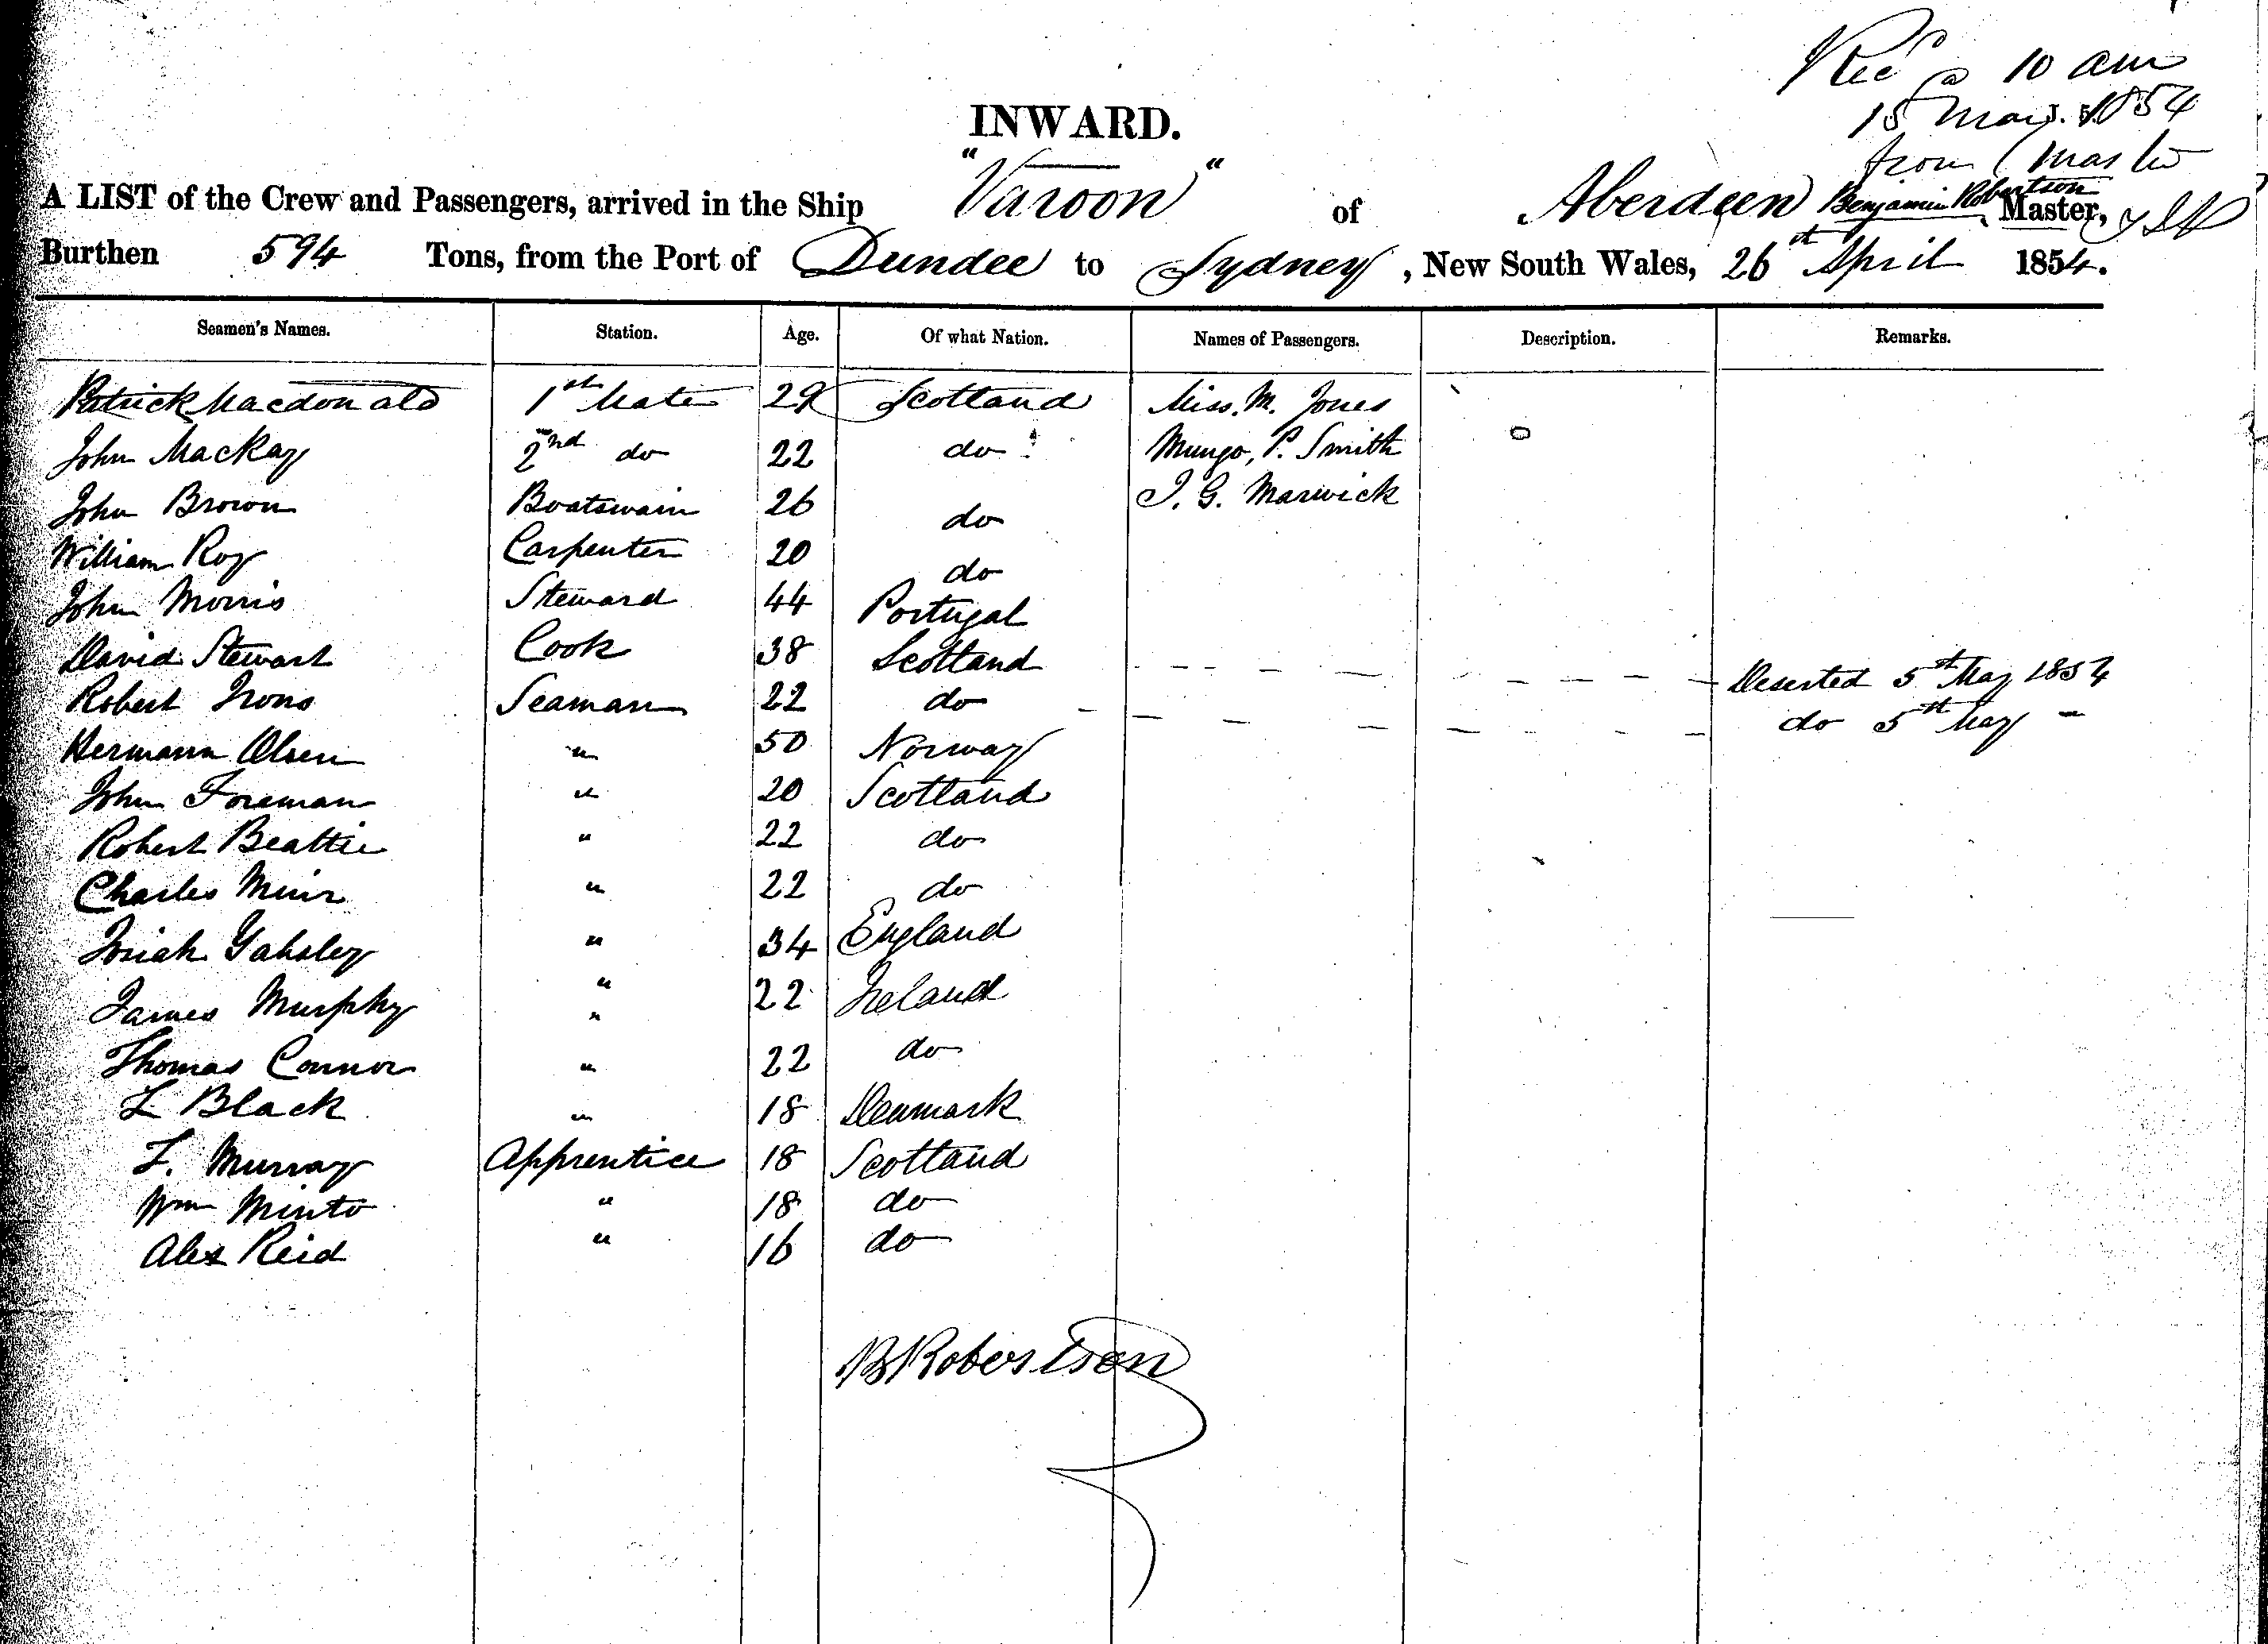 Rec^d @ 10 am
15 May. 1854
from Master
INWARD.
A LIST of the Crew and Passengers, arrived in the Ship "Varoon" of Aberdeen Benjamin Robertson Master,
Burthen 594 Tons, from the Port of Dundee to Sydney, New South Wales, 26th April 1854.
Seamen's Names. Station. Age. Of what Nation. Names of Passengers. Description. Remarks.
Patrick Macdonald 1st Mate 29 Scotland Miss. M. Jones
John Mackay 2nd do 22 do Mungo, P. Smith
John Brown Boatswain 26 do J. G. Marwick
William Roy Carpenter 20 do
John Morris Steward 44 Portugal
David Stewart Cook 38 Scotland Deserted 5th May 1854
Robert Irons Seaman 22 do do 5th May -
Hermann Olsen " 50 Norway
John Foreman " 20 Scotland
Robert Beattie " 22 do
Charles Muir " 22 do
Josiah " 34 England
James Murphy " 22 Ireland
Thomas Connor " 22 do
L Black " 18 Denmark
F. Murray Apprentice 18 Scotland
Wm Minto " 18 do
Alex Reid " 16 do
B Robertson